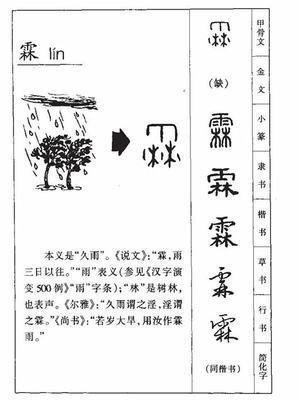 霖 lín
本义是“久雨”。《说文》：“霖，雨
三日以往。”“雨”表义（参见《汉字演
变500例》“雨”字条）；“林”是树林，
也表声。《尔雅》：“久雨谓之淫，淫谓
之霖。”《尚书》：“若岁大旱，用汝作霖
雨。”
霖
（缺）
霖
霖
霖
霖
霖
（同楷书）
甲骨文
金文
小篆
隶书
楷书
草书
行书
简化字